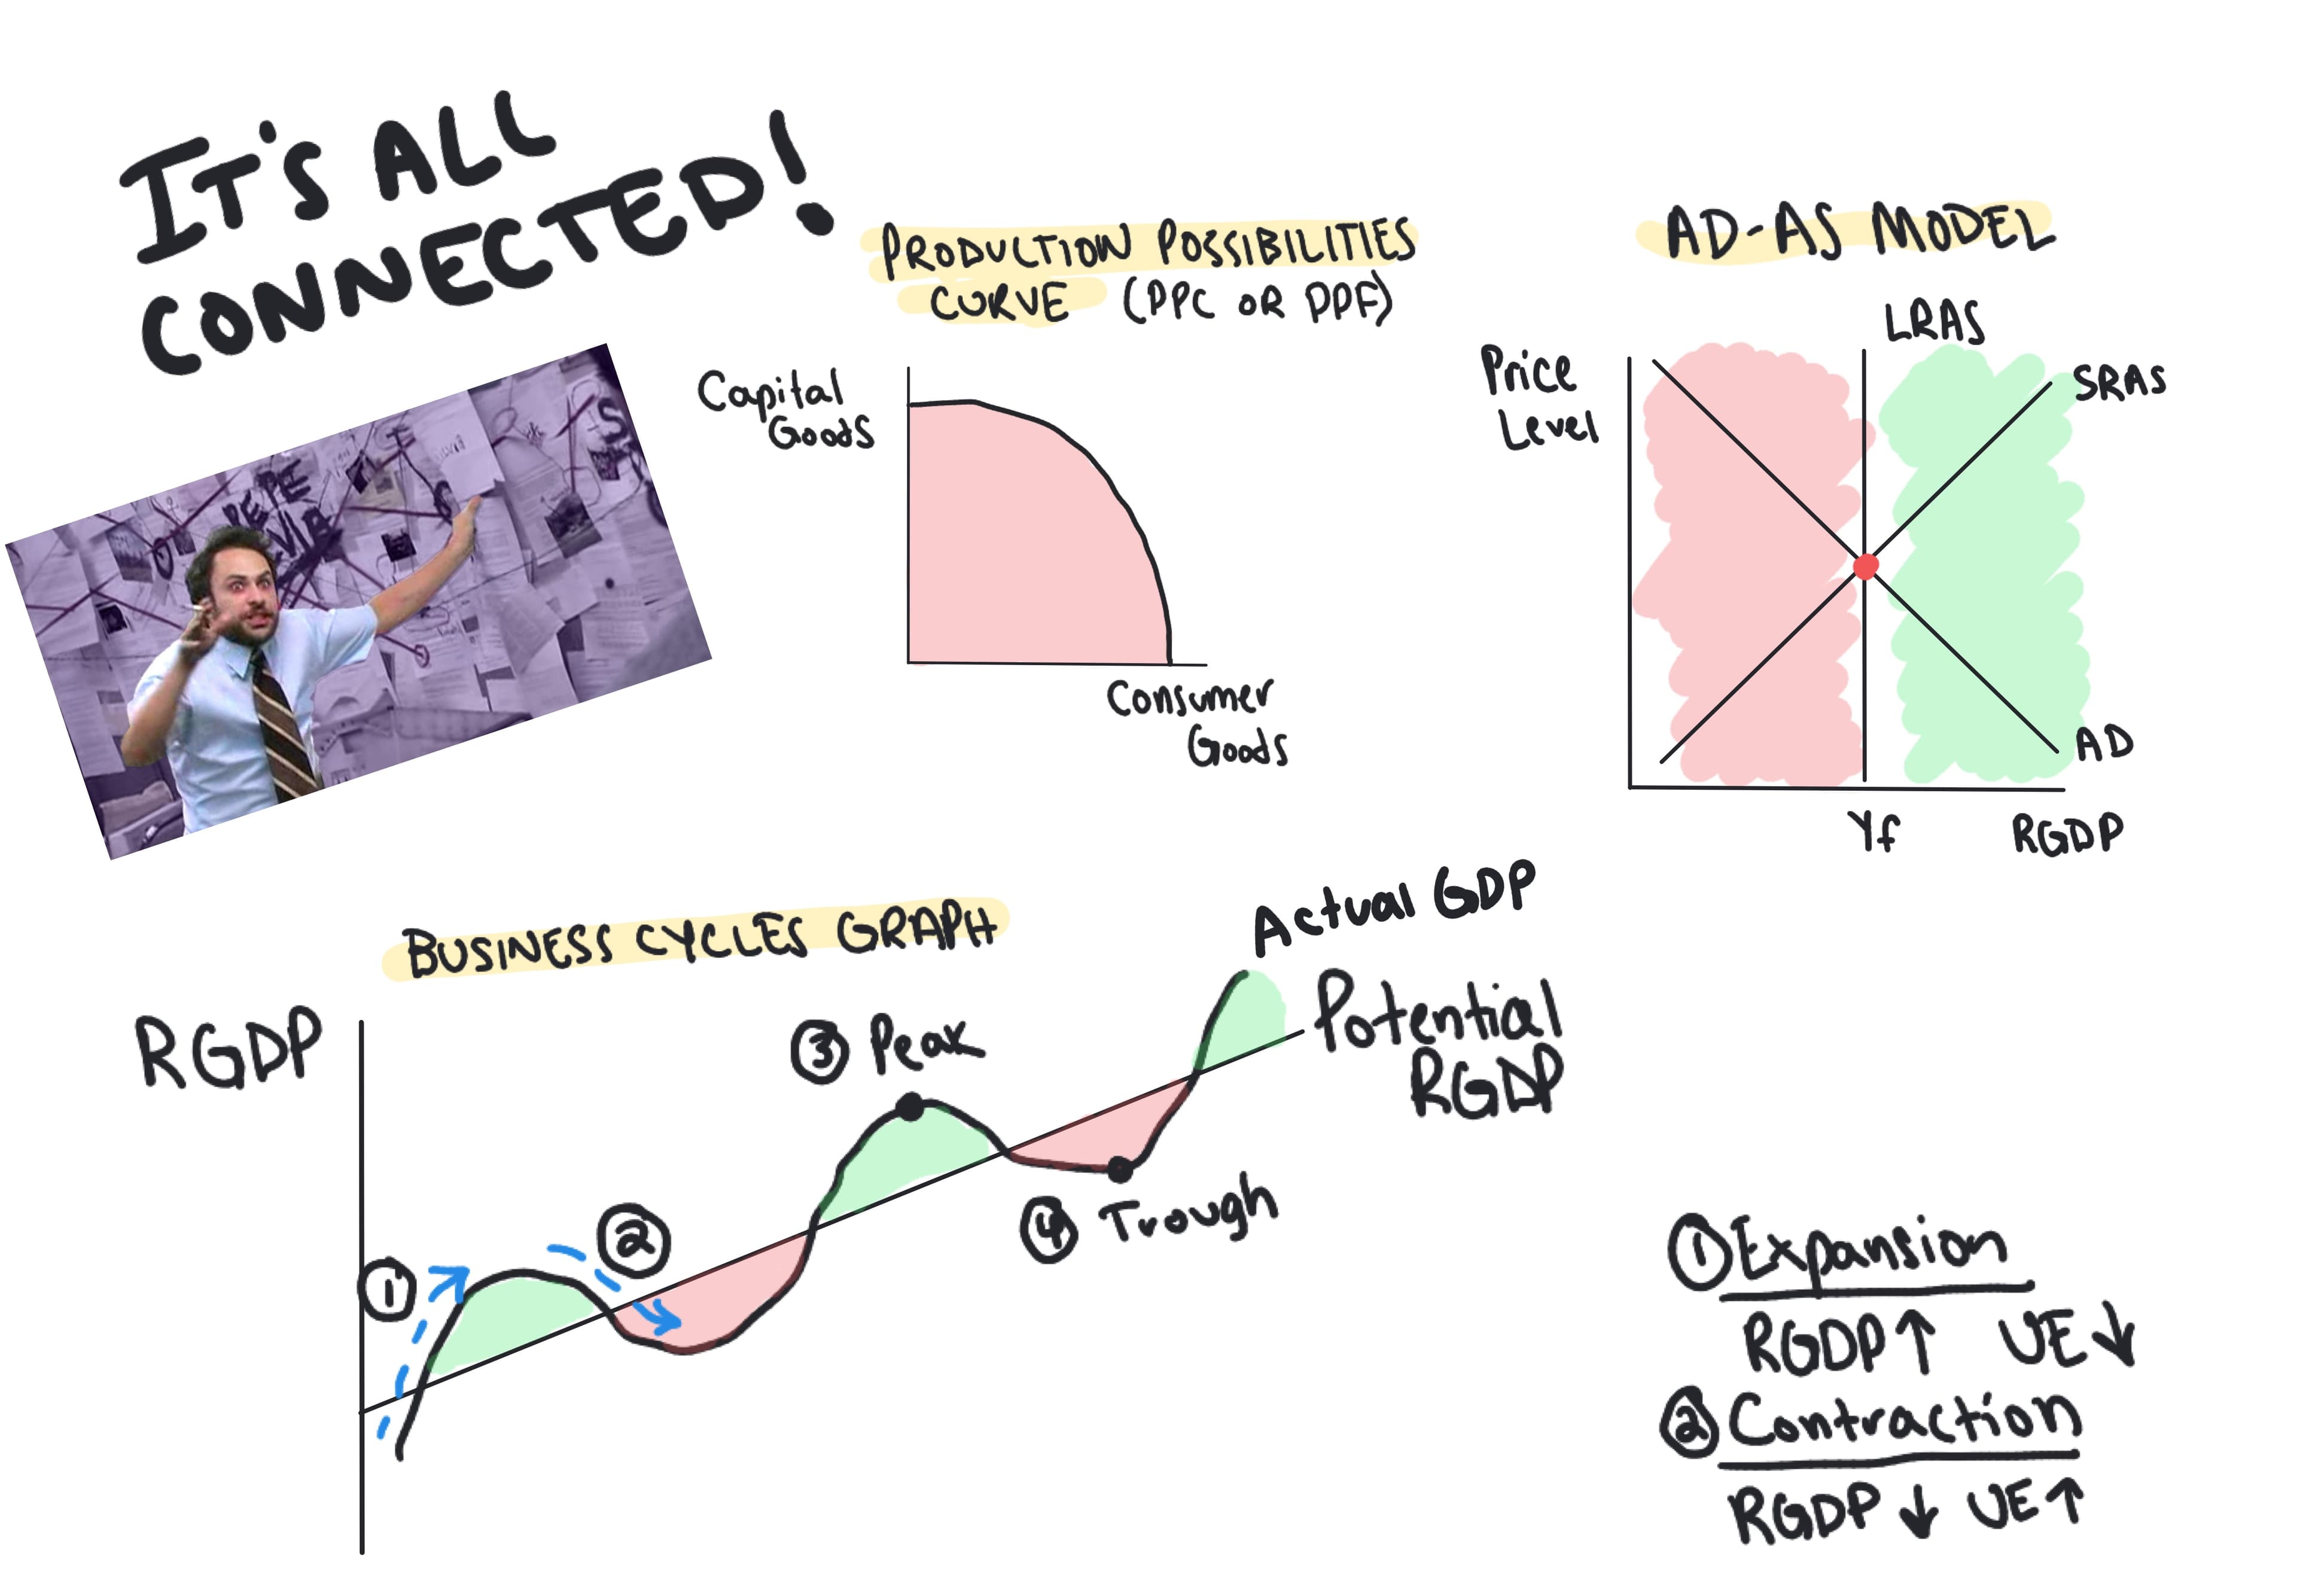 IT'S ALL
CONNECTED!
PRODUCTION POSSIBILITIES
CURVE (PPC OR PPF)
Capital
Goods
Consumer
Goods
AD-AS MODEL
LRAS
Price
Level
SRAS
AD
Yf
RGDP
PEPE
SILVIA
BUSINESS CYCLES GRAPH
Actual GDP
RGDP
③ Peak
Potential
RGDP
①
②
④ Trough
① Expansion
RGDP ↑ UE ↓
② Contraction
RGDP ↓ UE ↑